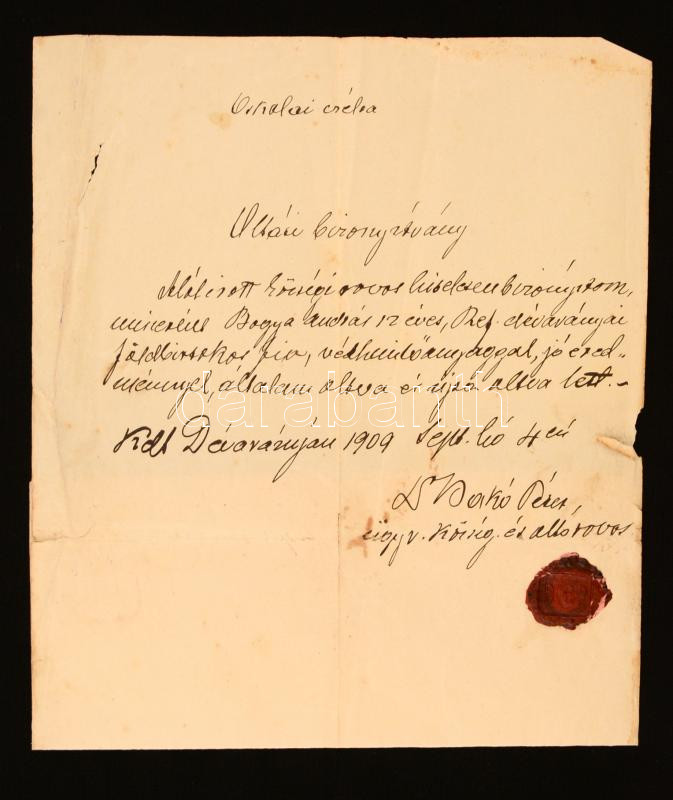 Iskolai célra
Oltási bizonyítvány
Alólirott községi orvos hitelesen bizonyitom,
miszerént Bogya András 12 éves, Ref. dévaványai
földbirtokos fia, védhimlőanyaggal, jó ered-
ménnyel, általam oltva és ujra oltva lett.-
Kelt Dévaványán 1909 Sept. hó 4én
Dr Bakó Péter,
ügyv. község. és oltó orvos
darabanth